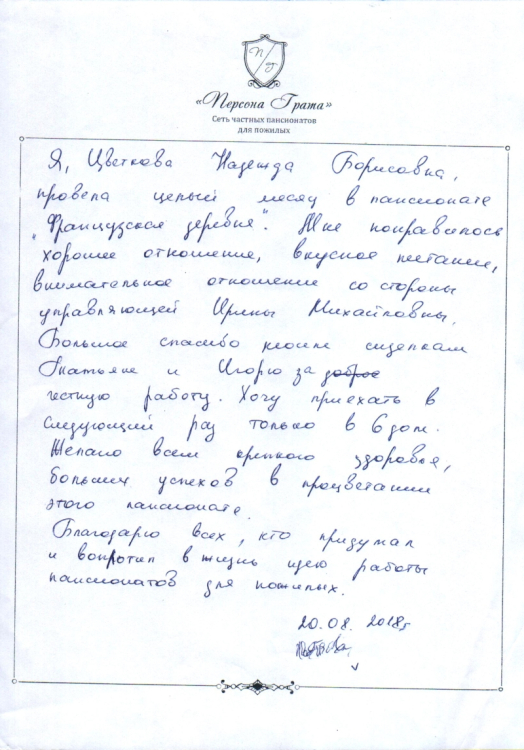 П Г
«Персона Грата»
Сеть частных пансионатов
для пожилых
Я, Цветкова Надежда Борисовна,
провела целый месяц в пансионате
„Французская деревня". Мне понравилось
хорошее отношение, вкусное питание,
внимательное отношение со стороны
управляющей Ирины Михайловны.
Большое спасибо моим сиделкам
Татьяне и Игорю за доброе
честную работу. Хочу приехать в
следующий раз только в 6 дом.
Желаю всем крепкого здоровья,
больших успехов в процветании
этого пансионата.
Благодарю всех, кто придумал
и вопротил в жизнь идею работы
пансионатов для пожилых.
20.08.2018г